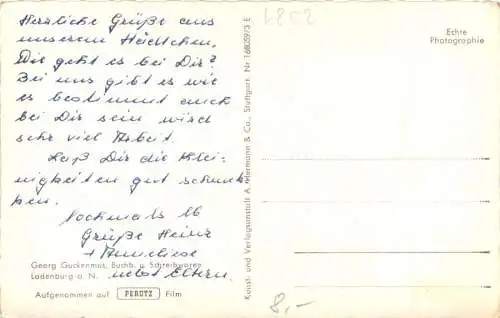 Herzliche Grüße aus
unserem Städtchen.
Wie geht es bei Dir?
Bei uns gibt es wie
es bestimmt auch
bei Dir sein wird
sehr viel Arbeit.
Laß Dir die Klei-
nigkeiten gut schmek-
ken.
Nochmals lb
Grüße Heinz
+ Anneliese
nebst Eltern.
Georg Guckenmus, Buchb. u. Schreibwaren
Ladenburg a. N.
Aufgenommen auf PERUTZ Film
Kunst- und Verlagsanstalt A. Hermann & Co., Stuttgart. Nr
L802
Echte
Photographie
8,-